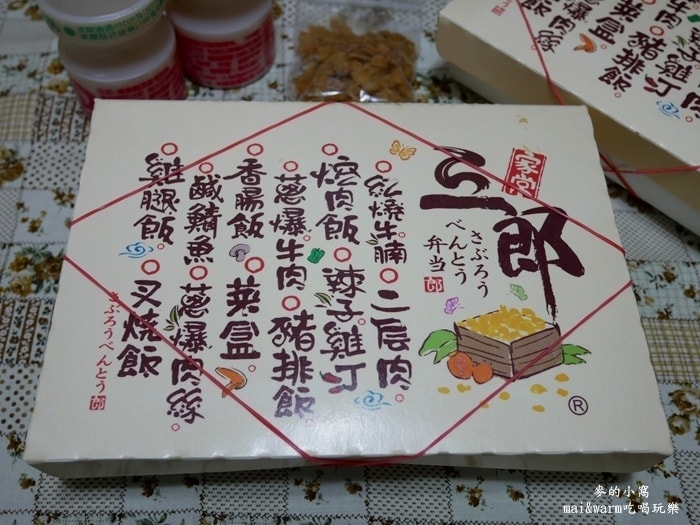 家常
三郎
さぶろう
べんとう
弁当
郎
紅燒牛腩
二层肉
焢肉飯
辣子雞丁
蔥爆牛肉
豬排飯
香腸飯
菜盒
鹹鯖魚
蔥爆肉絲
雞腿飯
叉燒飯
さぶろうべんとう
郎
®
雞丁
豬排飯
爆肉絲
麥的小窩
mai&warm吃喝玩樂